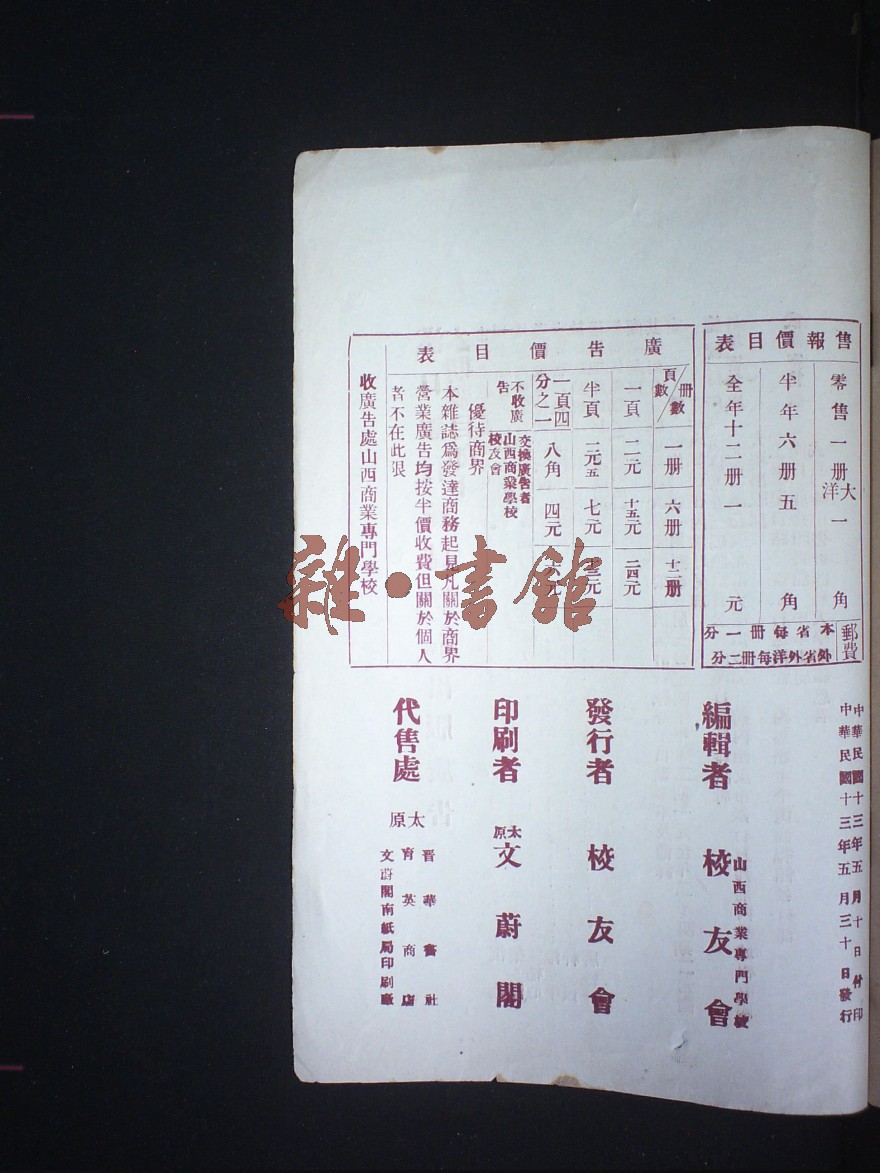 售報價目表
零售一册大洋一角
半年六册五角
全年十二册一元
郵費
本省每册一分
外省外洋每册二分
廣告價目表
册數
頁數
一册
六册
十二册
一頁
二元
十五元
二四元
半頁
一元五
七元
一頁四分之一
八角
四元
不收廣告
交換廣告者
山西商業學校
校友會
優待商界
本雜誌爲發達商務起見凡關於商界
營業廣告均按半價收費但關於個人
者不在此限
收廣告處山西商業專門學校
中華民國十三年五月十日付印
中華民國十三年五月三十日發行
編輯者 山西商業專門學校 校友會
發行者 校友會
印刷者 太原 文蔚閣
代售處 太原
晋華書社
育英商店
文蔚閣南紙局印刷廠
雜·書館